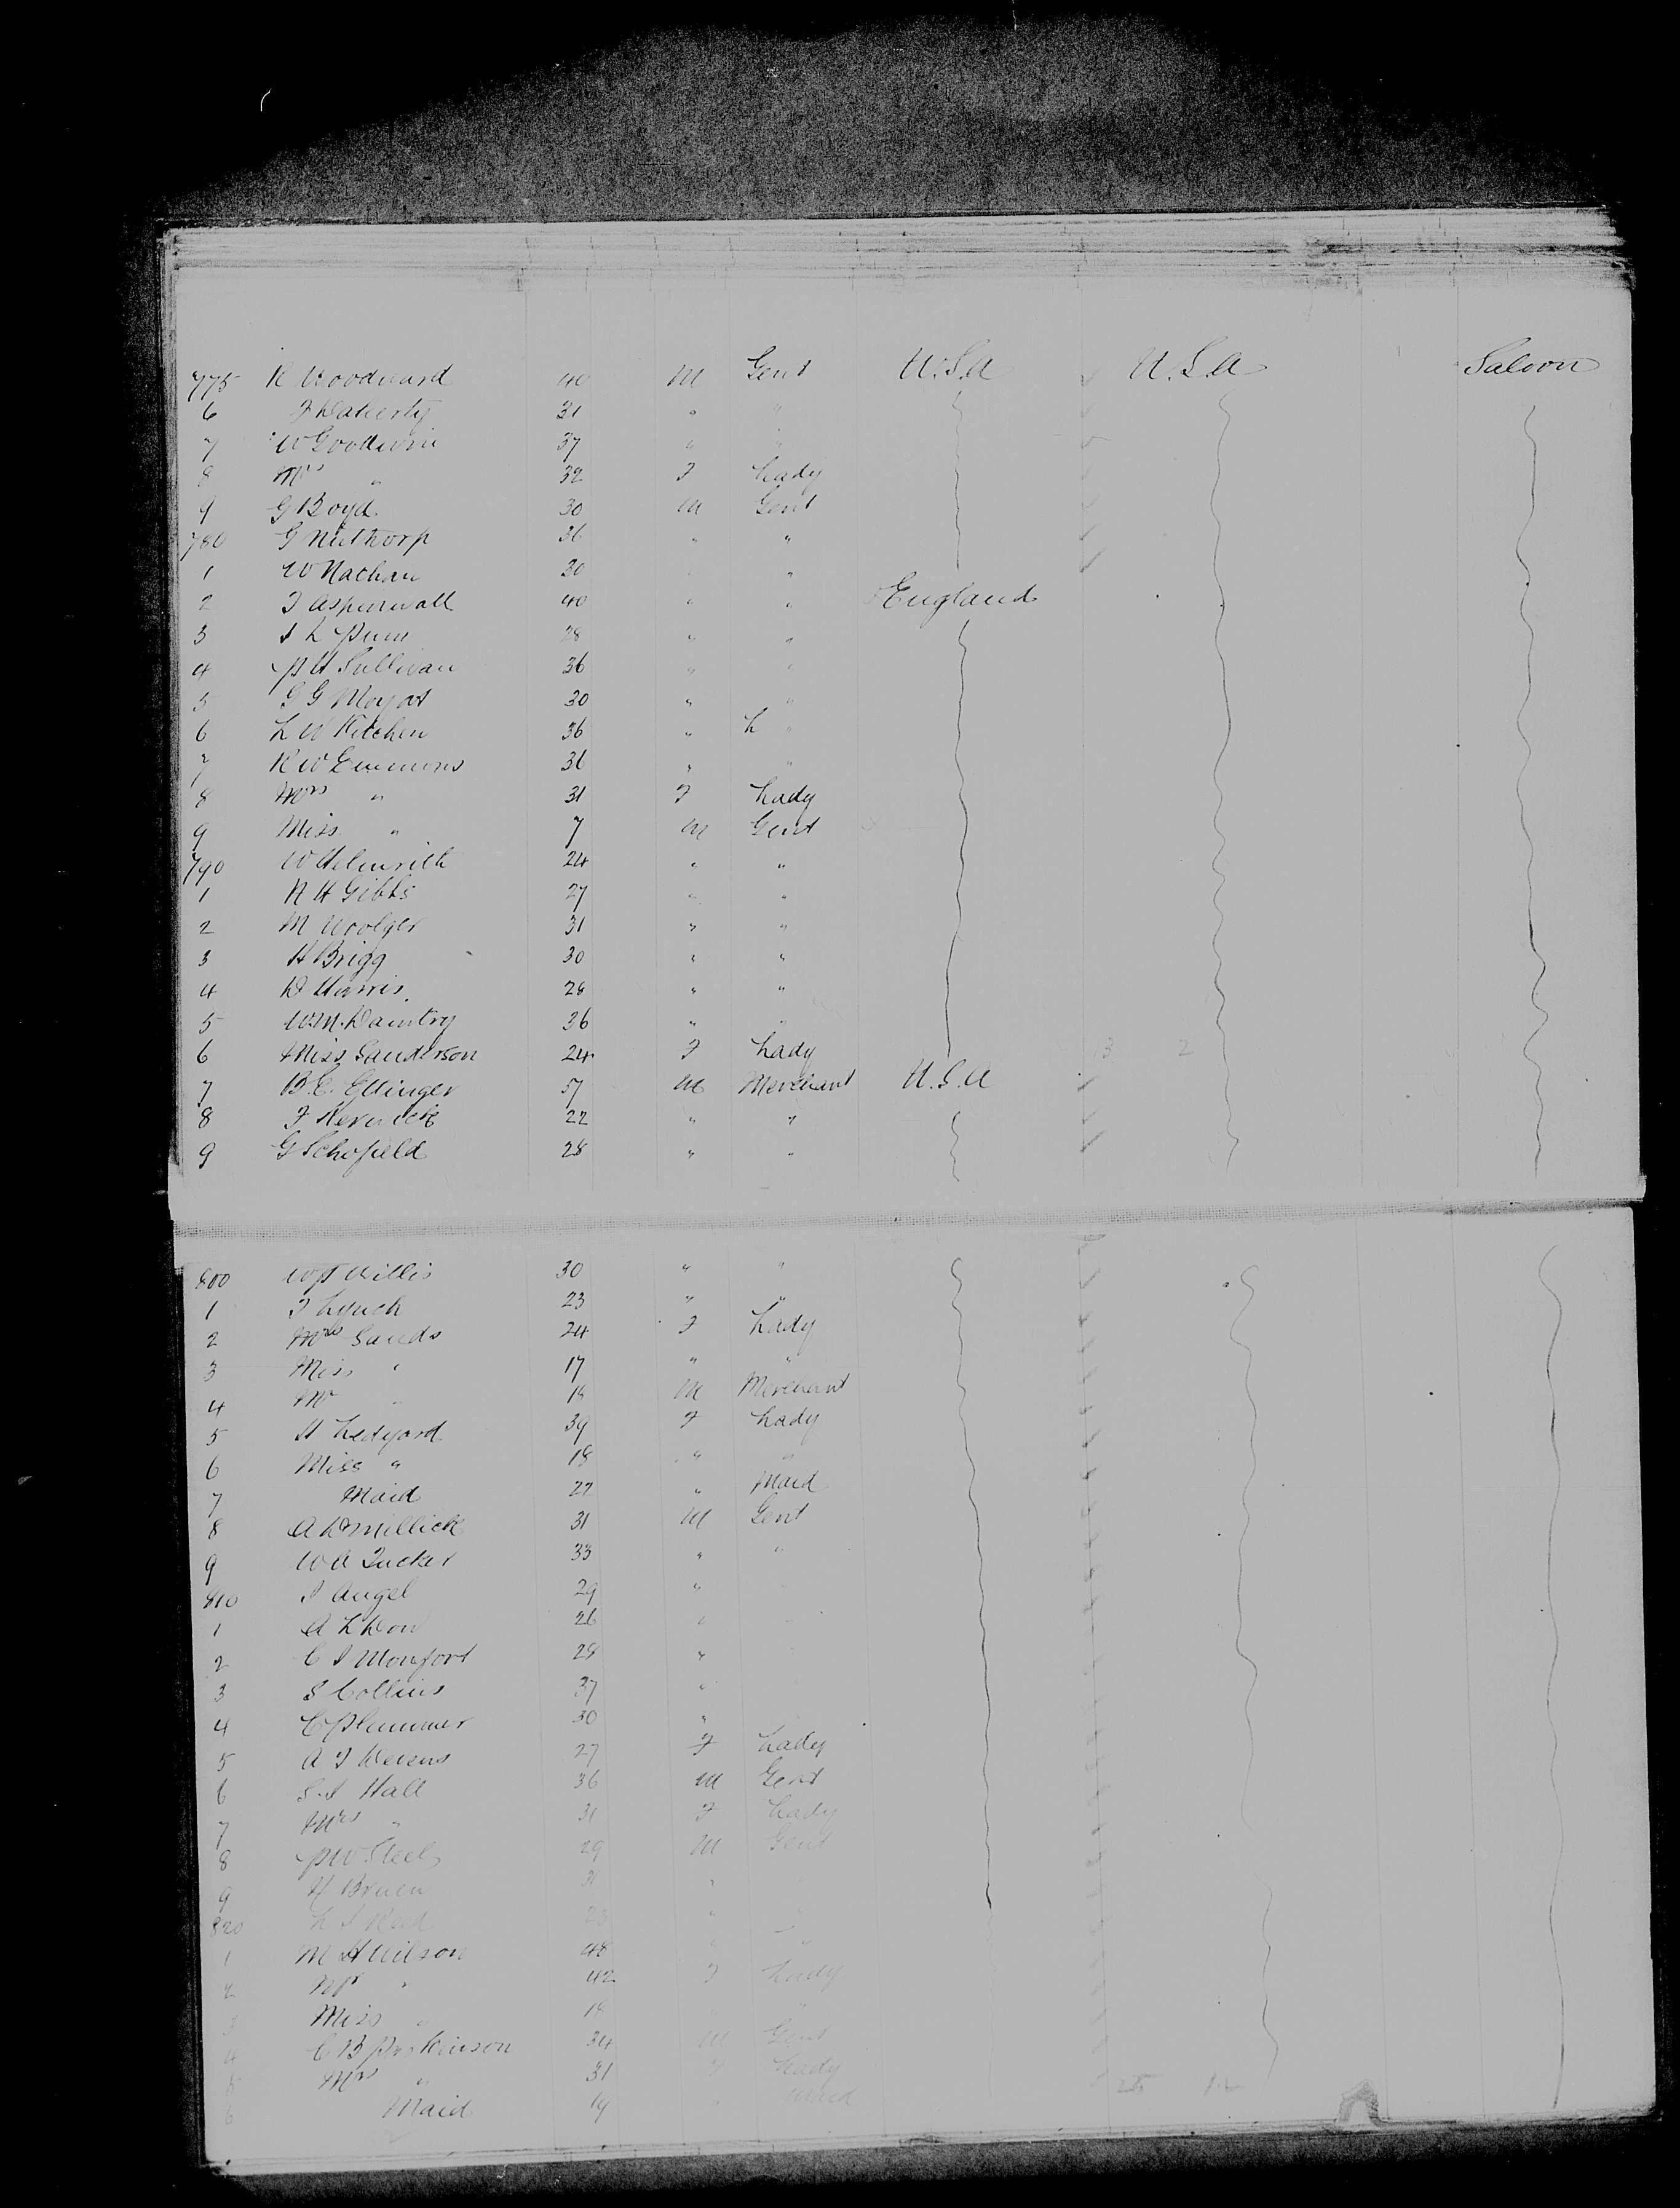 775 R Woodward 40 M Gent U.S.A U.S.A Saloon
6 31 " "
7 W Goodwin 37 " "
8 Mrs " 32 F Lady
9 G Boyd 30 M Gent
780 G Nuthorp 36 " "
1 W Nathan 30 " "
2 J Aspinwall 40 " " England
3 28 " "
4 P H Sullivan 36 " "
5 G G 30 " "
6 L W Kitchen 36 " L "
7 R W Emmons 36 " "
8 Mrs " 31 F Lady
9 Miss " 7 M Gent
790 W 24 " "
1 N H Gibbs 27 " "
2 M Woolger 31 " "
3 H Brigg 30 " "
4 D Harris 28 " "
5 W.M. Daintry 36 " "
6 Miss Sanderson 24 F Lady 3 2
7 B.E. Ettinger 57 M Merchant U.S.A
8 F 22 " "
9 G Schofield 28 " "
800 Willis 30 " "
1 J Lynch 23 " "
2 Mrs Sands 24 F Lady
3 Miss " 17 " "
4 Mr " 18 M Merchant
5 H Ledyard 39 F Lady
6 Miss " 18 " "
7 Maid 27 " Maid
8 A D Millick 31 M Gent
9 W A Tucker 33 " "
810 J Angel 29 "
1 A L Dow 26 "
2 C J Monfort 28 "
3 S Collins 37 "
4 C Plummer 30 "
5 A J Devens 27 F Lady
6 S.J Hall 36 M Gent
7 Mrs " 31 F Lady
8 P W Steel 29 M Gent
9 H Bruen 31 "
820 L J Reed 23 " "
1 M H Wilson 48 " "
2 " 42 F Lady
3 Miss " 18
4 C B Parkinson 34 M Gent
5 Mrs " 31 F Lady
6 Maid 19 " Maid